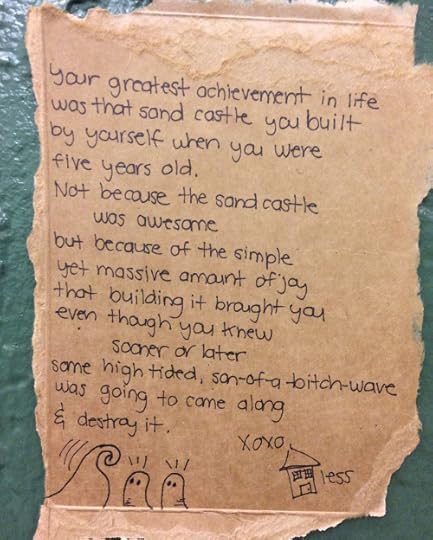 your greatest achievement in life
was that sand castle you built
by yourself when you were
five years old.
Not because the sand castle
was awesome
but because of the simple
yet massive amount of joy
that building it brought you
even though you knew
sooner or later
some high tided, son-of-a-bitch-wave
was going to come along
& destroy it.
xoxo
less